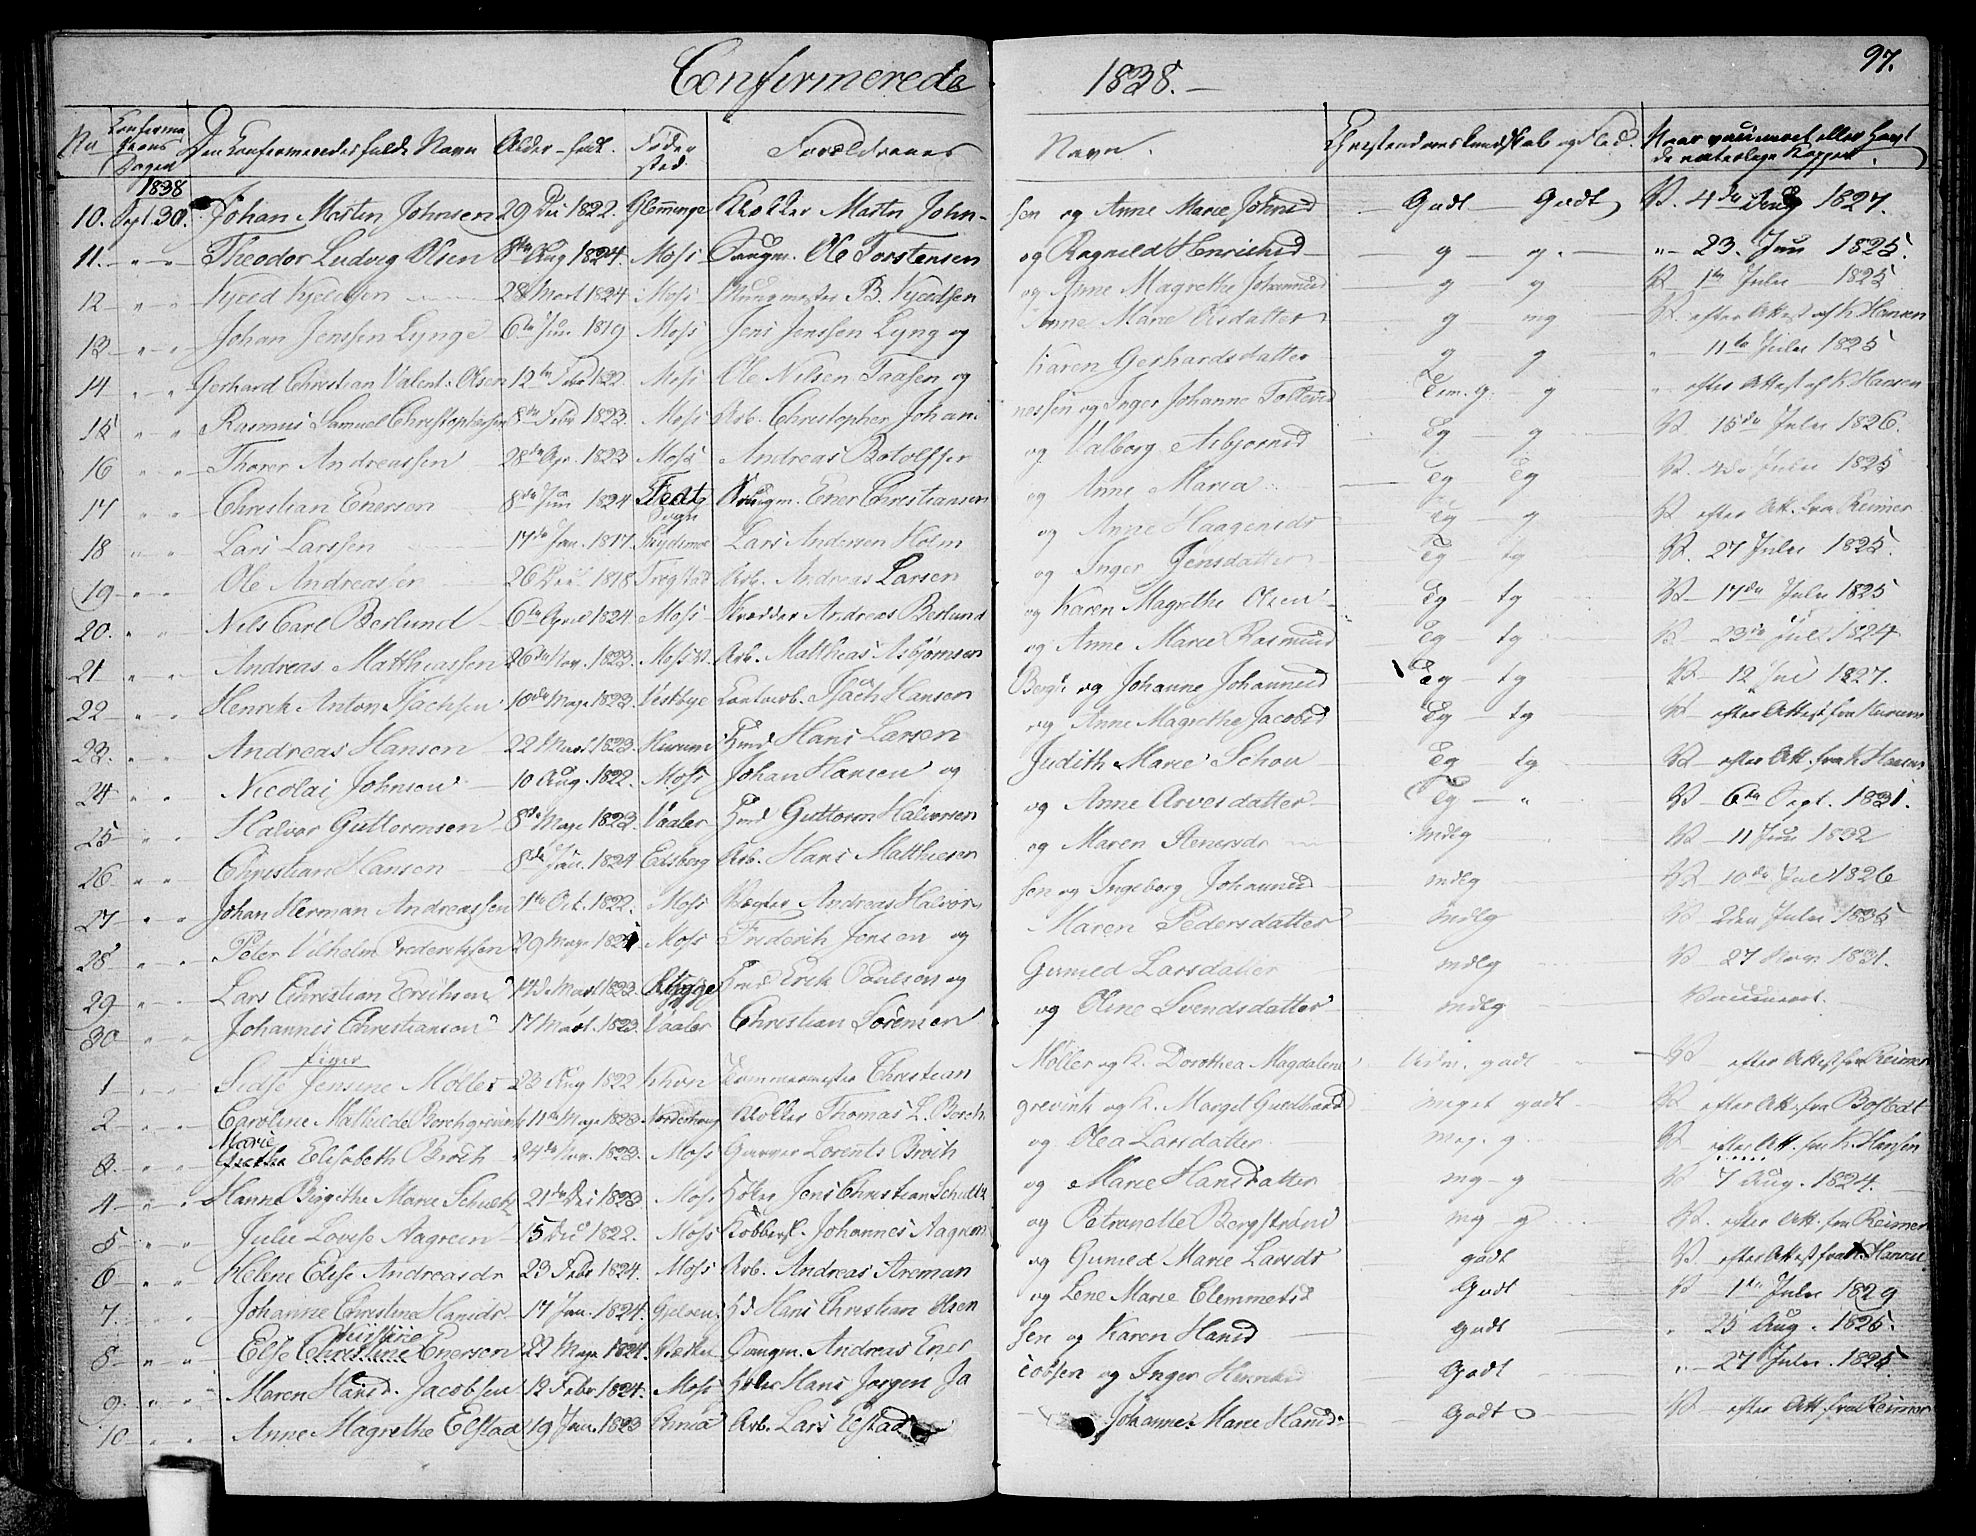 Confirmerede 1838.—
97.
No Confirmations Dagen Den Confirmeredes fulde Navn Alder-født. Føde sted Forældrenes Navn. Christendomskundskab og Flid. Naar vaccineret eller havt de naturlige Kopper.
1838
10. Sept. 30. Johan Martin Johnsen 29 Dec 1822. Glemminge Klokker Martin John- sen og Anne Marie Johnsd Godt — Godt V. 4de Aug 1827.
11. " " Theodor Ludvig Olsen 8de Aug 1824. Moss Saugm. Ole Torstensen og Ragnild Henrichsd g — g. " 23. Jun 1825.
12 " " Kjeld Kjeldsen 28 Mart 1824 Moss B. Kjeldsen og Anne Magrethe Johannesd g g V. 1te Julii 1825
13 " " Johan Jenssen Lynge 6te Jun. 1819 Moss Jens Jenssen Lyng og Anne Marie Olsdatter g mg V. efter Attest af K. Hansen
14 " " Gerhard Christian Valent. Olsen 12te Febr 1822. Moss Ole Nilsen Taasen og Karen Gerhardsdatter g g " 11te Julii 1825
15 " " Rasmus Samuel Christophersen 8de Febr 1823. Moss Arb. Christopher Johan- nessen og Inger Johanne g " efter Attest af K. Hansen
16 " " Thorer Andreassen 28de Apr. 1823 Moss Andreas Botolfsen og Valborg Asbjørnsd Tg — g V. 15de Julii 1826.
17 " " Christian Enersen 8de 1824 Sogn Ener Christiansen og Anne Maria Tg Tg V. Julii 1825
18 " " Lars Larssen 17de Jan. 1817 Lars Andersen Holm og Anne Haagensdr Tg — g V. efter Att. fra Reimer
19 " " Ole Andreassen 26 Dec. 1818 Trøgstad Arb. Andreas Larsen og Inger Jensdatter Tg — tg V. 27 Julii 1825.
20. " " Nils Carl Berlund 6te April 1824. Moss Skrædder Andreas Berlund og Karen Magrethe Olsen Tg — tg V. 17de Julii 1825
21 " " Andreas Matthiassen 26de Nov. 1823. Moss Arb. Matthias Asbjørnsen og Anne Marie Rasmusd Tg — tg V. 23de Jul. 1824
22 " " Henrik Anton Isachsen 10de Maye 1823. Vestbye Isach Hansen og Johanne Johannesd Tg — tg V. 12 Jul 1827.
23. " " Andreas Hansen 22 Mart 1823. Huusmd Hans Larsen og Anne Magrethe Jacobsd Tg — tg V. efter Attest fra
24 " " Nicolai Johnsen 10 Aug. 1822. Moss Johan Hansen og Judith Marie Schou Tg tg V. efter Att. fra K. Hansen
25 " " Halvor Guttormsen 8de Maye 1823. Vaaler Huusmd Guttorm Halvorsen og Anne Arvesdatter Tg — " V. 6te Sept. 1831.
26 " " Christian Hansen 8de Jan. 1824 Edsberg Arb. Hans Matthiesen og Maren Stenersdr mdlg V. 11 Jun 1832
27 " " Johan Herman Andreassen 1te Oct. 1822. Moss Andreas Halvor- sen og Ingeborg Johannesd mdlg V. 10de Jul 1826
28 " " Peter Vilhelm Frederiksen 29 Maye 1821 Moss Frederik Jensen og Maren Pedersdatter mdlg V. 2den Julii 1835
29 " " Lars Christian Eriksen 14de Mart 1823. Rygge Erik Paulsen og Gunild Larsdatter mdlg V. 27 Nov 1831.
30 " " Johannes Christiansen 17 Mart. 1823. Vaaler Christian Sørensen og Oline Svendsdatter mdlg Vaccineret.
Piger
1 " " Sidse Jensine Møller 23 Aug 1822 Christian Møller og K. Dorothea Magdalene Udm. godt V. efter Attest fra Reimer
2 " " Caroline Mathilde Borchgrevink 11te Maye 1823. Klokker Thomas L. Borch grevink og K. Marget Guldbrand meget godt V. efter Att. fra Bostedt
Marie
3. " " Grethe Elisabeth Broch 24de Nov. 1823. Moss Garver Lorents Broch og Olea Larsdatter meg. g. V. efter Att. fra K. Hansen
4 " " Hanne Birgithe Marie Schultz 21de Dec 1823 Moss Jens Christian Schultz og Marie Hansdatter mg — g V. 7 Aug. 1824.
5 " " Julie Lovise Aagreen 15 Dec 1822. Moss Kobbersl. Johannes Aagreen og Petronelle Bergstrøm mg — g V. efter Att. fra Reimer
6 " " Helene Elise Andreasdr 23 Febr 1824. Moss Arb. Andreas Areman og Gunild Marie Larsdr godt V. efter Attest fra Hansen
7. " " Johanne Christine Hansdr 17 Jan. 1824. Hans Christian Olsen og Lene Marie Clemmetsd Godt V. 1te Julii 1829
8 " " Else Christine Enersen 22 Maye 1824. Saugm. Andreas Ener sen og Karen Hansd Godt " 25 Aug. 1825.
9. " " Maren Hansd. Jacobsen 12 Febr 1824. Moss Hans Jørgen Ja cobsen og Inger Godt " 27 Julii 1825
10 " " Anne Magrethe Elstad 19 Jan. 1823 Arb. Lars Elstad Johanne Marie Hansd. Godt V. efter Att. fra Reimer